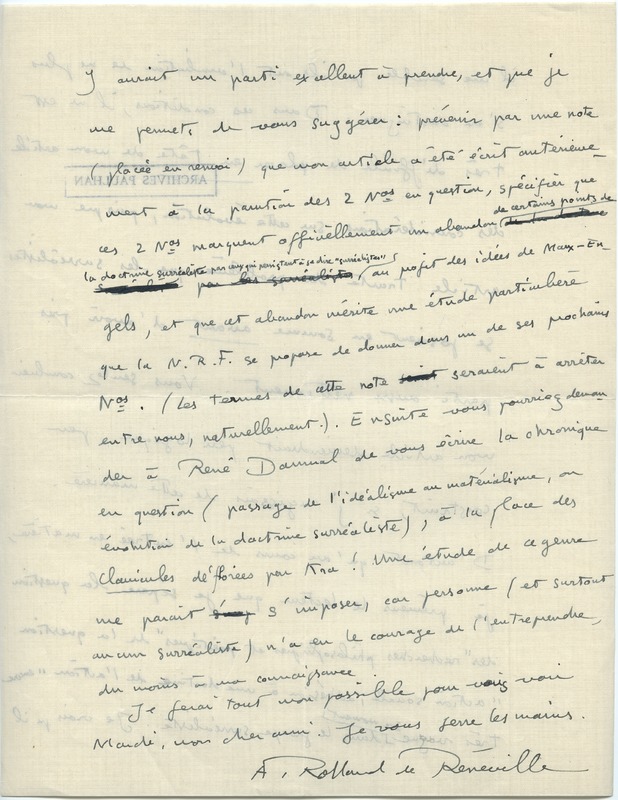 Y aurait un parti excellent à prendre, et que je
me permets de vous suggérer : prévenir par une note
(placée en renvoi) que mon article a été écrit antérieure-
ment, à la parution des 2 Nos en question, spécifier que
ces 2 Nos marquent officiellement un abandon de certains points de
la doctrine surréaliste par ceux qui persistent à se dire "surréalistes"
par les surréalistes, au profit des idées de Marx-En-
gels, et que cet abandon mérite une étude particulière
que la N.R.F. se propose de donner dans un de ses prochains
Nos. (Les termes de cette note seraient à arrêter
entre nous, naturellement.). Ensuite vous pourriez deman-
der à René Daumal de vous écrire la chronique
en question (passage de l'idéalisme au matérialisme, ou
évolution de la doctrine surréaliste), à la place des
Clavicules déflorées par Kra ! Une étude de ce genre
me paraît s'imposer, car personne (et surtout
aucun surréaliste) n'a eu le courage de l'entreprendre,
du moins à ma connaissance.
Je ferai tout mon possible pour vous voir
Mardi, mon cher ami. Je vous serre les mains.
A. Rolland de Renéville
ARCHIVES PAULHAN